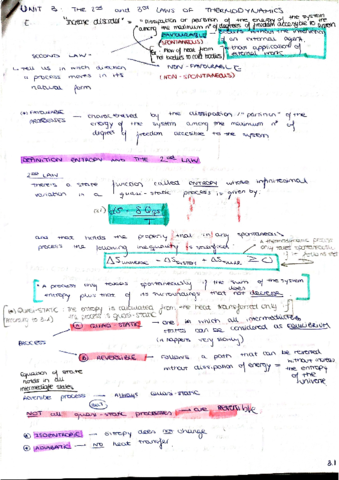 UNIT 3. THE 2nd and 3rd LAWS OF THERMODYNAMICS
"Increase disorder" = "dissipation or partition of the energy of the system
among the maximum nº of degrees of freedom accessible to the system
FAVOURABLE
(SPONTANEOUS)
occurs without the intervention
of an external agent,
application of
external work
Flow of heat from
hot bodies to cold bodies
SECOND LAW
NON-FAVOURABLE
(NON-SPONTANEOUS)
tell us in which direction
a process moves in its
natural form
(*) FAVOURABLE
PROCESSES
characterised by the dissipation / "partition" of the
energy of the system among the maximum nº of
degrees of freedom accessible to the system
DEFINITION ENTROPY and THE 2nd LAW
2nd LAW
There's a state function called ENTROPY whose infinitesimal
variation in a quasi-static process is given by:
and that holds the property that in any spontaneous
process the following inequality is satisfied
ΔS universe = ΔS system + ΔS surr ≥ 0
A thermodynamic process
only occurs spontaneously
A process only occurs spontaneously if the sum of the system
entropy plus that of its surroundings does not decrease
QUASI-STATIC: The entropy is calculated from the heat transferred only
if the process is quasi-static
QUASI-STATIC → one in which all intermediate
states can be considered as EQUILIBRIUM
(it happens very slowly)
PROCESS
REVERSIBLE → Follows a path that can be reversed
without dissipation of energy = the entropy
of the
universe
Equation of state
holds in all
intermediate states
Reversible process → ALWAYS QUASI-STATIC
but
NOT all quasi-static processes → are reversible
ISOENTROPIC → entropy does NOT change
ADIABATIC → NO heat transfer
3.1